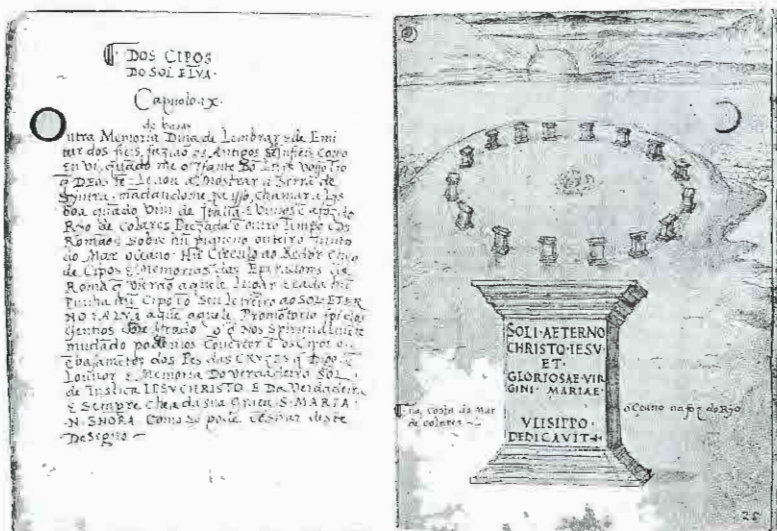 DOS CIPOS
DO SOL ELVA·
Capitolo ix·
de baxar
Outra Memoria Dina de Lembrar e de Emi
tar dos fieis fazião os Antigos Infieis como
eu vi, quãdo me o Ifante Dõ Luis
DEOS Te levou a Mostrar a Serra de
Syntra, mãdandome pa isso chamar a Lis
boa quãdo Vim de Italia E Vimos e a foz do
Ryo de Colares
Romãos Sobre hũ piqueno outeiro Junto
do Mar oceano· Hũ Circulo ao Redor cheo
de Cipos E Memorias dos Emperadores de
Roma q̃ Vierão aquele Lugar E cada hũ
Punha hũ Cipo cõ Seu letreiro ao SOL ETER
NO E A LVA a que aquele Promotorio foi dos
Gentios e Nos Spiritualmẽte
mudado podemos Converter os Cipos
dos Pes das CRUZES
Louvor E Memoria Do verdadeiro SOL
de Justiça IESU CHRISTO E Da Verdadeira
E Sempre Chea da sua Graça S· MARIA
N· SNORA Como se pode deste
Desegno
SOLI·AETERNO
CHRISTO·IESV·
ET·
GLORIOSAE·VIR
GINI· MARIAE·
VLISIPPO·
DEDICAVIT
Na costa do Mar
de colares
o Oceano na foz do Ryo
25